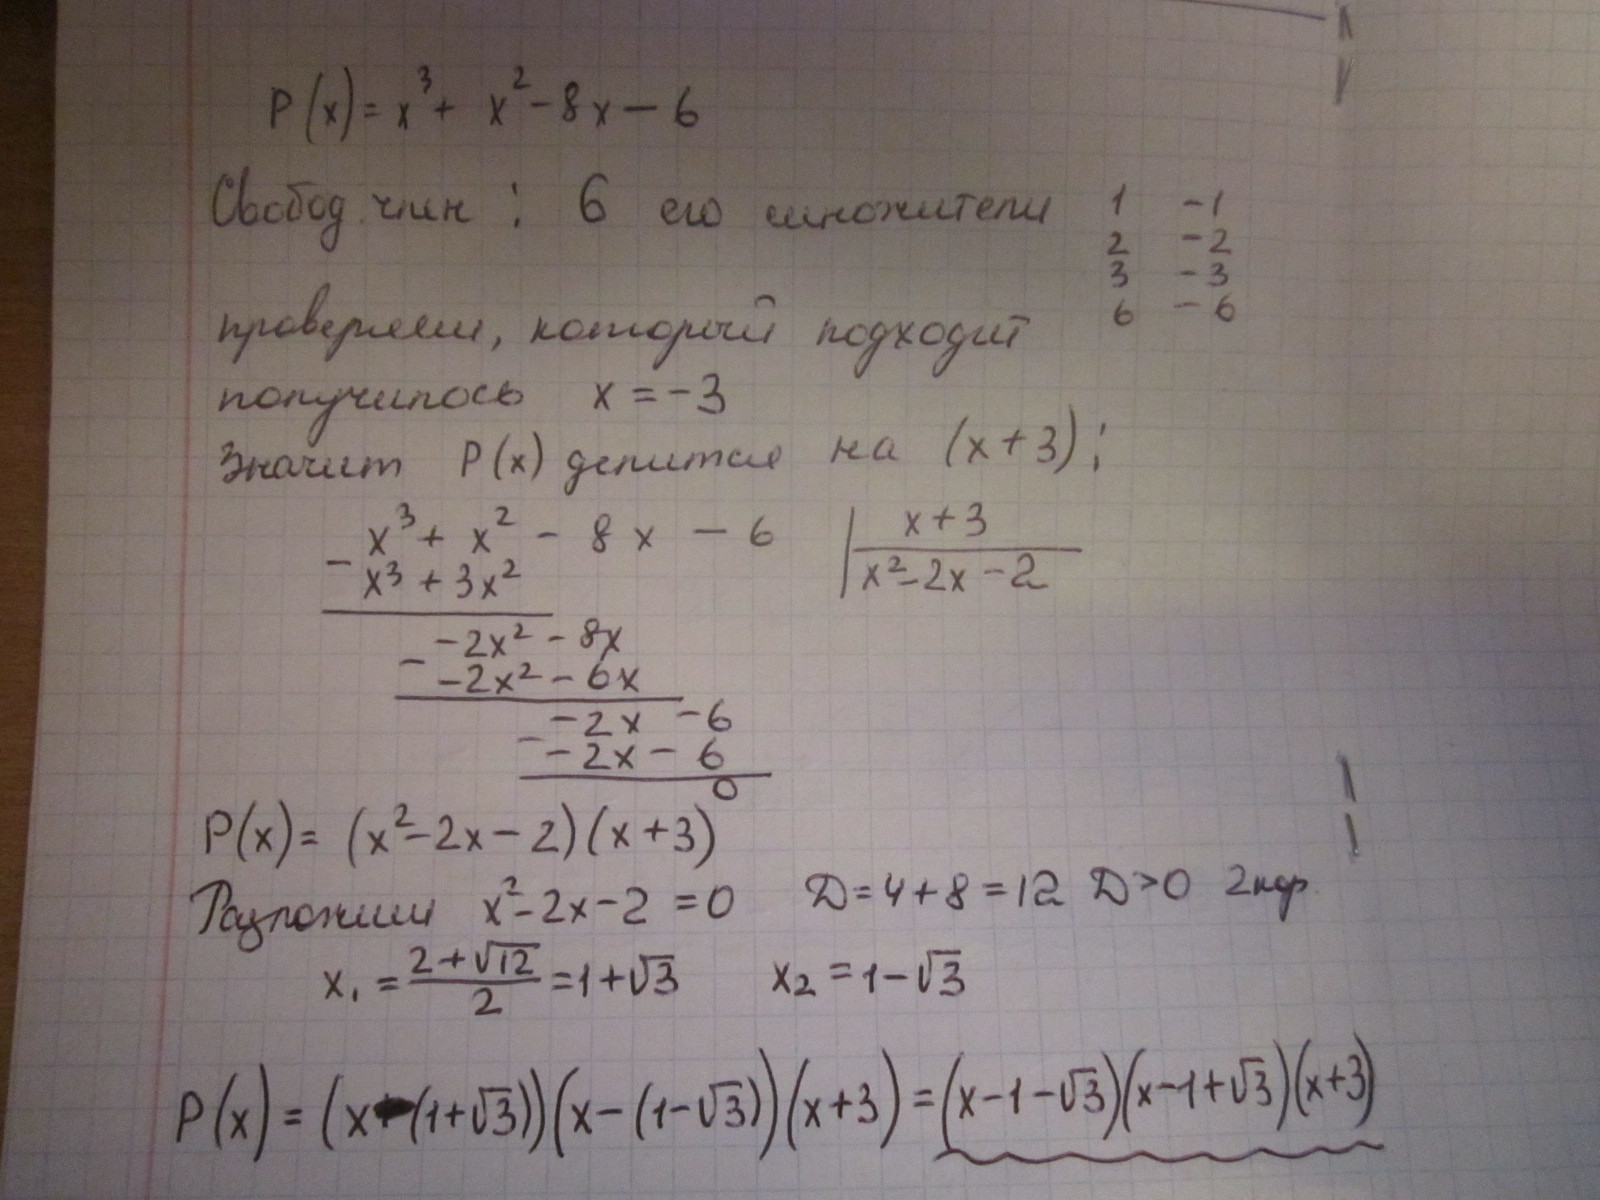 P(x) = x³ + x² - 8x - 6
Свобод. член : 6 его множители 1 -1
2 -2
3 -3
6 -6
проверяем, который подходит
получилось x = -3
Значит P(x) делится на (x+3);
x³ + x² - 8x - 6 | x+3
- x³ + 3x² x² - 2x - 2
-2x² - 8x
- -2x² - 6x
-2x - 6
- -2x - 6
0
P(x) = (x² - 2x - 2)(x+3)
Разложим x² - 2x - 2 = 0 D = 4 + 8 = 12 D > 0 2 кор.
x₁ = (2+√12)/2 = 1+√3 x₂ = 1-√3
P(x) = (x-(1+√3))(x-(1-√3))(x+3) = (x-1-√3)(x-1+√3)(x+3)